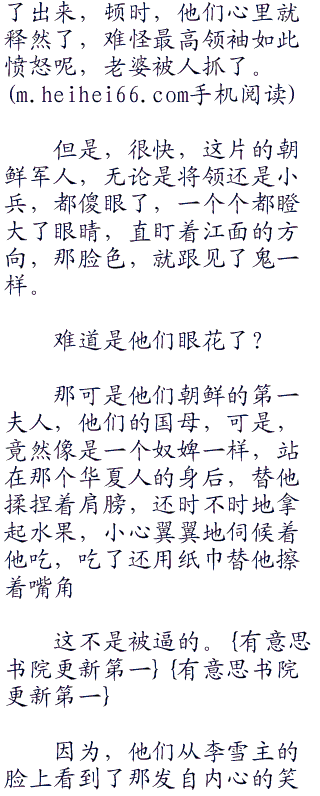 了出来，顿时，他们心里就
释然了，难怪最高领袖如此
愤怒呢，老婆被人抓了。
(m.heihei66.com手机阅读)
但是，很快，这片的朝
鲜军人，无论是将领还是小
兵，都傻眼了，一个个都瞪
大了眼睛，直盯着江面的方
向，那脸色，就跟见了鬼一
样。
难道是他们眼花了？
那可是他们朝鲜的第一
夫人，他们的国母，可是，
竟然像是一个奴婢一样，站
在那个华夏人的身后，替他
揉捏着肩膀，还时不时地拿
起水果，小心翼翼地伺候着
他吃，吃了还用纸巾替他擦
着嘴角
这不是被逼的。{有意思
书院更新第一}{有意思书院
更新第一}
因为，他们从李雪主的
脸上看到了那发自内心的笑